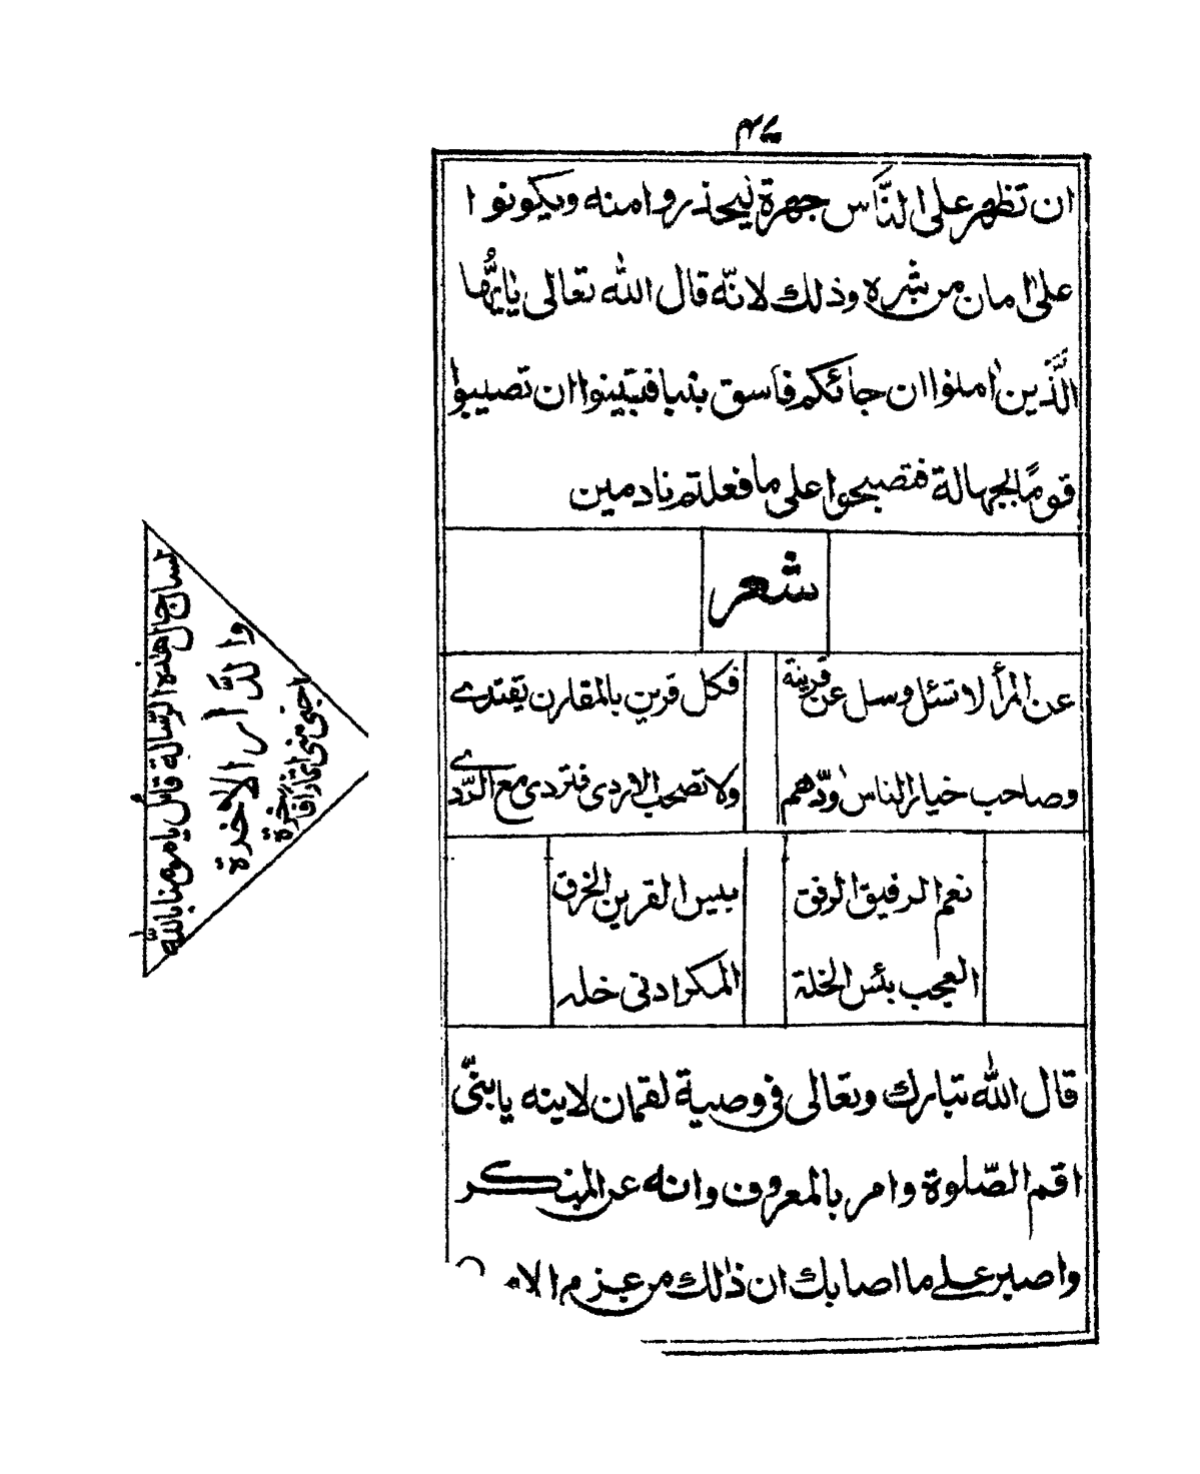 ٤٧
ان تظهر على النَّاس جهرة ليحذروا منه ويكونوا
على امان من شره وذلك لانّه قال الله تعالى يٰايّها
الَّذين اٰمنوا ان جائكم فاسق بنبا فتبيّنوا ان تصيبوا
قومًا بجهالة فتصبحوا على ما فعلتم نادمين
شعر
عن المرأ لا تسئل وسل عن قرينة
فكل قرين بالمقارن يقتدى
وصاحب خيار الناس ودّهم
ولا تصحب الاردى فتردى مع الرّد
نعم الرفيق الرفق
بئس القرين الخرق
العجب بئس الخلة
المكر ادنى خله
قال الله تبارك وتعالى فى وصية لقمان لابنه يا بنىّ
اقم الصّلوة وامر بالمعروف وانه عن المنكر
واصبر على ما اصابك ان ذلك من عزم الام
هذه الرّسالة قائل يا مومنا بالله
والدَّار الاٰخرة